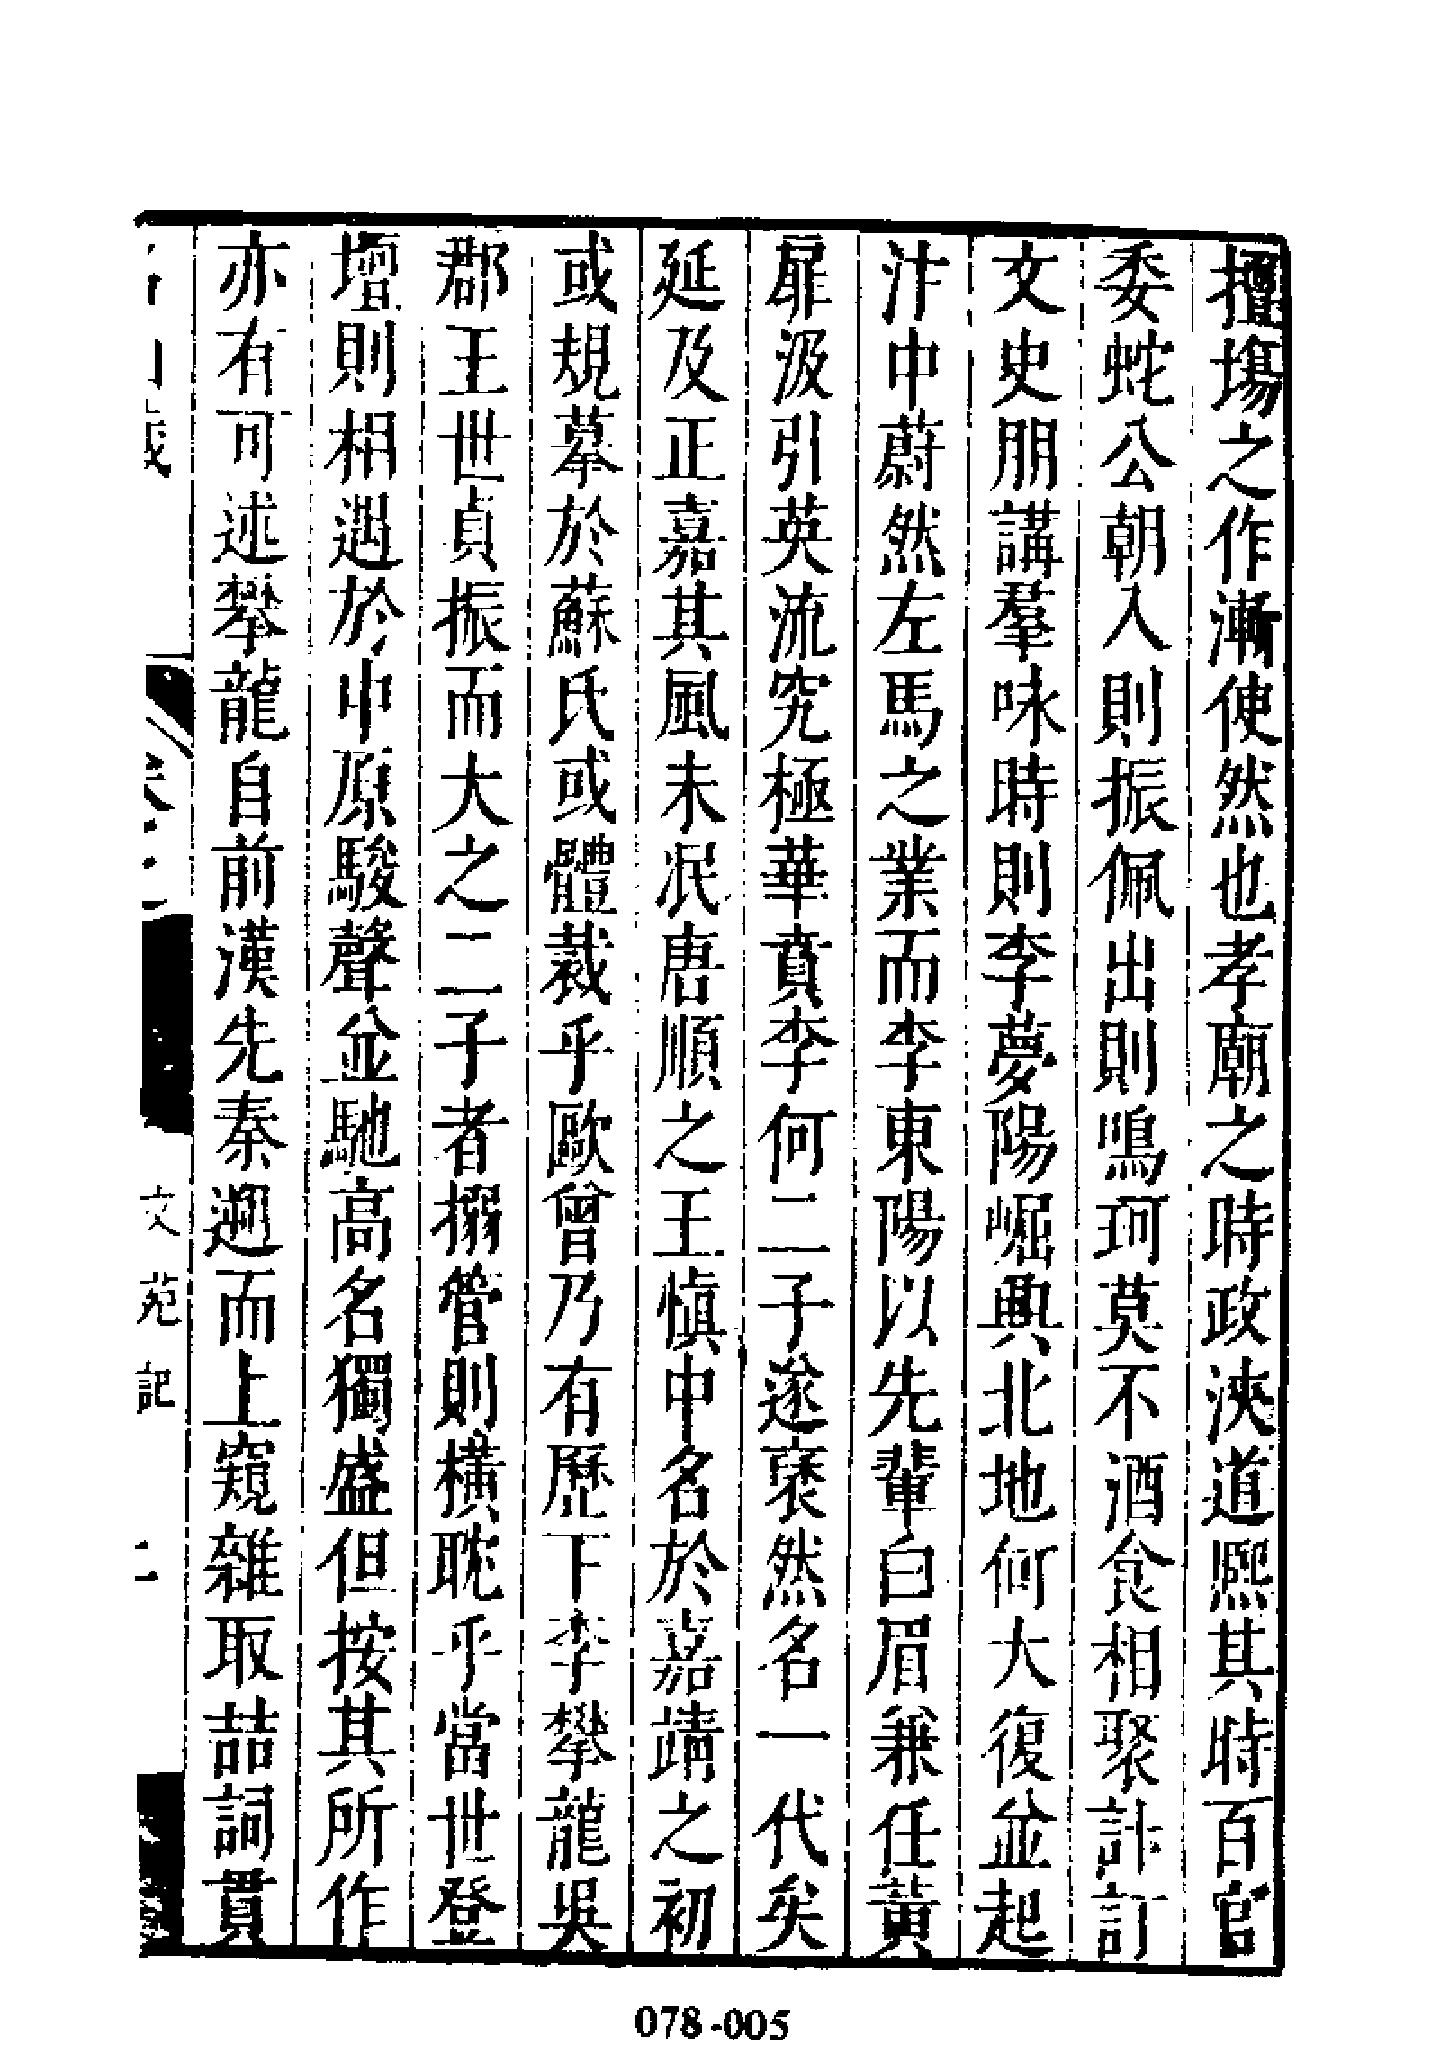 擅塲之作漸使然也孝廟之時政浹道熙其時百官
委蛇公朝入則振佩出則鳴珂莫不酒食相聚訃訂
文史朋講羣咏時則李夢陽崛興北地何大復並起
汴中蔚然左馬之業而李東陽以先輩白眉兼任黃
扉汲引英流究極華賁李何二子遂褎然名一代矣
延及正嘉其風未泯唐順之王慎中名於嘉靖之初
或規摹於蘇氏或體裁乎歐曾乃有歷下李攀龍吳
郡王世貞振而大之二子者搦管則橫耽乎當世登
壇則相遇於中原駿聲並馳高名獨盛但按其所作
亦有可述攀龍自前漢先秦遡而上窺雜取喆詞貫
名山藏 卷之 文苑記 二
078-005